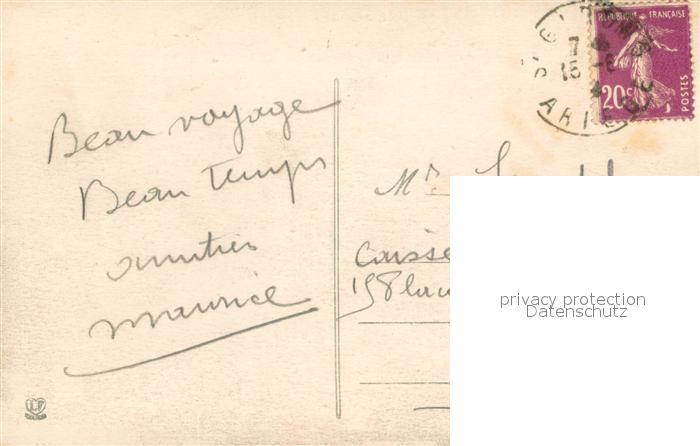 Beau voyage
Beau Temps
amitiés
Maurice
RÉPUBLIQUE FRANÇAISE
20c
POSTES
ST GIRONS
15 -8
ARIEGE
Mr
Caisse
158
privacy protection
Datenschutz